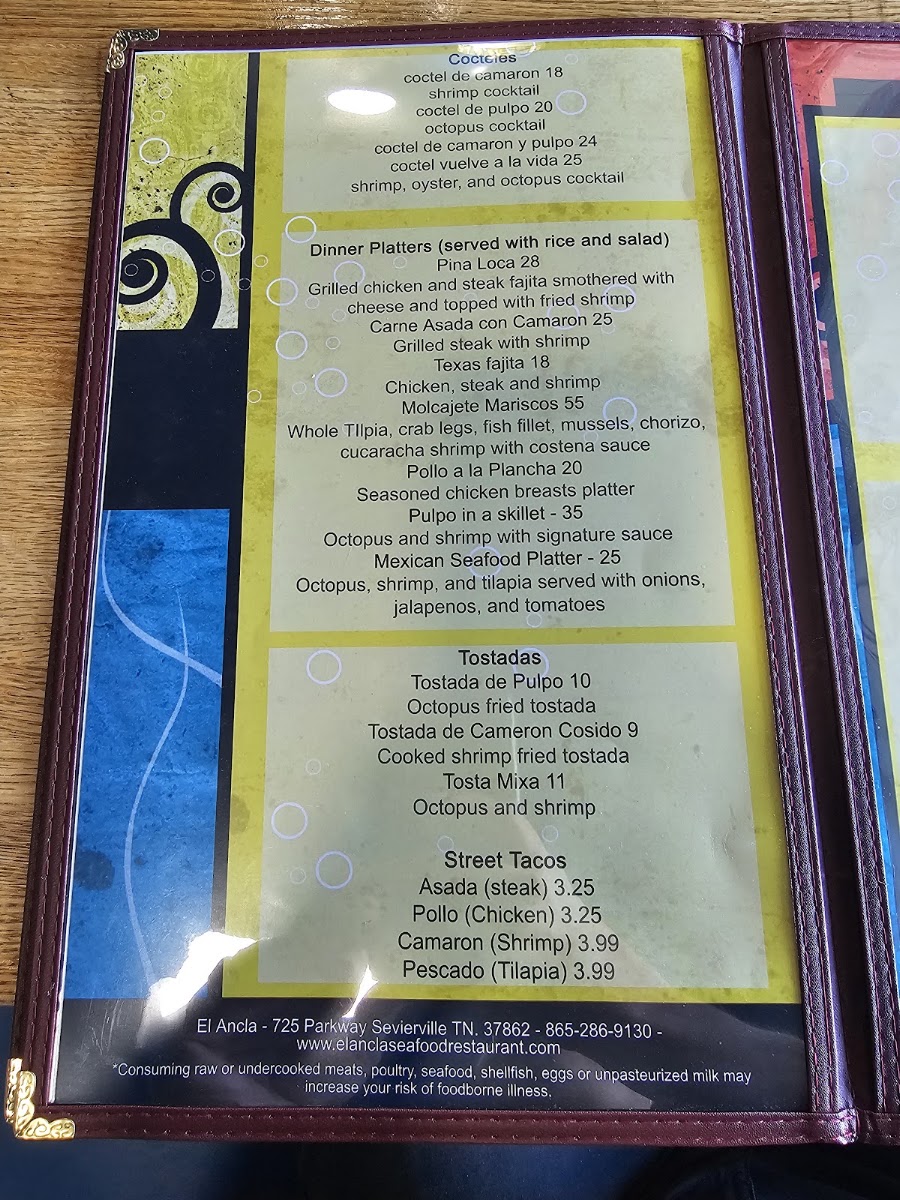 Cocteles
coctel de camaron 18
shrimp cocktail
coctel de pulpo 20
octopus cocktail
coctel de camaron y pulpo 24
coctel vuelve a la vida 25
shrimp, oyster, and octopus cocktail
Dinner Platters (served with rice and salad)
Pina Loca 28
Grilled chicken and steak fajita smothered with
cheese and topped with fried shrimp
Carne Asada con Camaron 25
Grilled steak with shrimp
Texas fajita 18
Chicken, steak and shrimp
Molcajete Mariscos 55
Whole TIlpia, crab legs, fish fillet, mussels, chorizo,
cucaracha shrimp with costena sauce
Pollo a la Plancha 20
Seasoned chicken breasts platter
Pulpo in a skillet - 35
Octopus and shrimp with signature sauce
Mexican Seafood Platter - 25
Octopus, shrimp, and tilapia served with onions,
jalapenos, and tomatoes
Tostadas
Tostada de Pulpo 10
Octopus fried tostada
Tostada de Cameron Cosido 9
Cooked shrimp fried tostada
Tosta Mixa 11
Octopus and shrimp
Street Tacos
Asada (steak) 3.25
Pollo (Chicken) 3.25
Camaron (Shrimp) 3.99
Pescado (Tilapia) 3.99
El Ancla - 725 Parkway Sevierville TN. 37862 - 865-286-9130 -
www.elanclaseafoodrestaurant.com
*Consuming raw or undercooked meats, poultry, seafood, shellfish, eggs or unpasteurized milk may
increase your risk of foodborne illness.